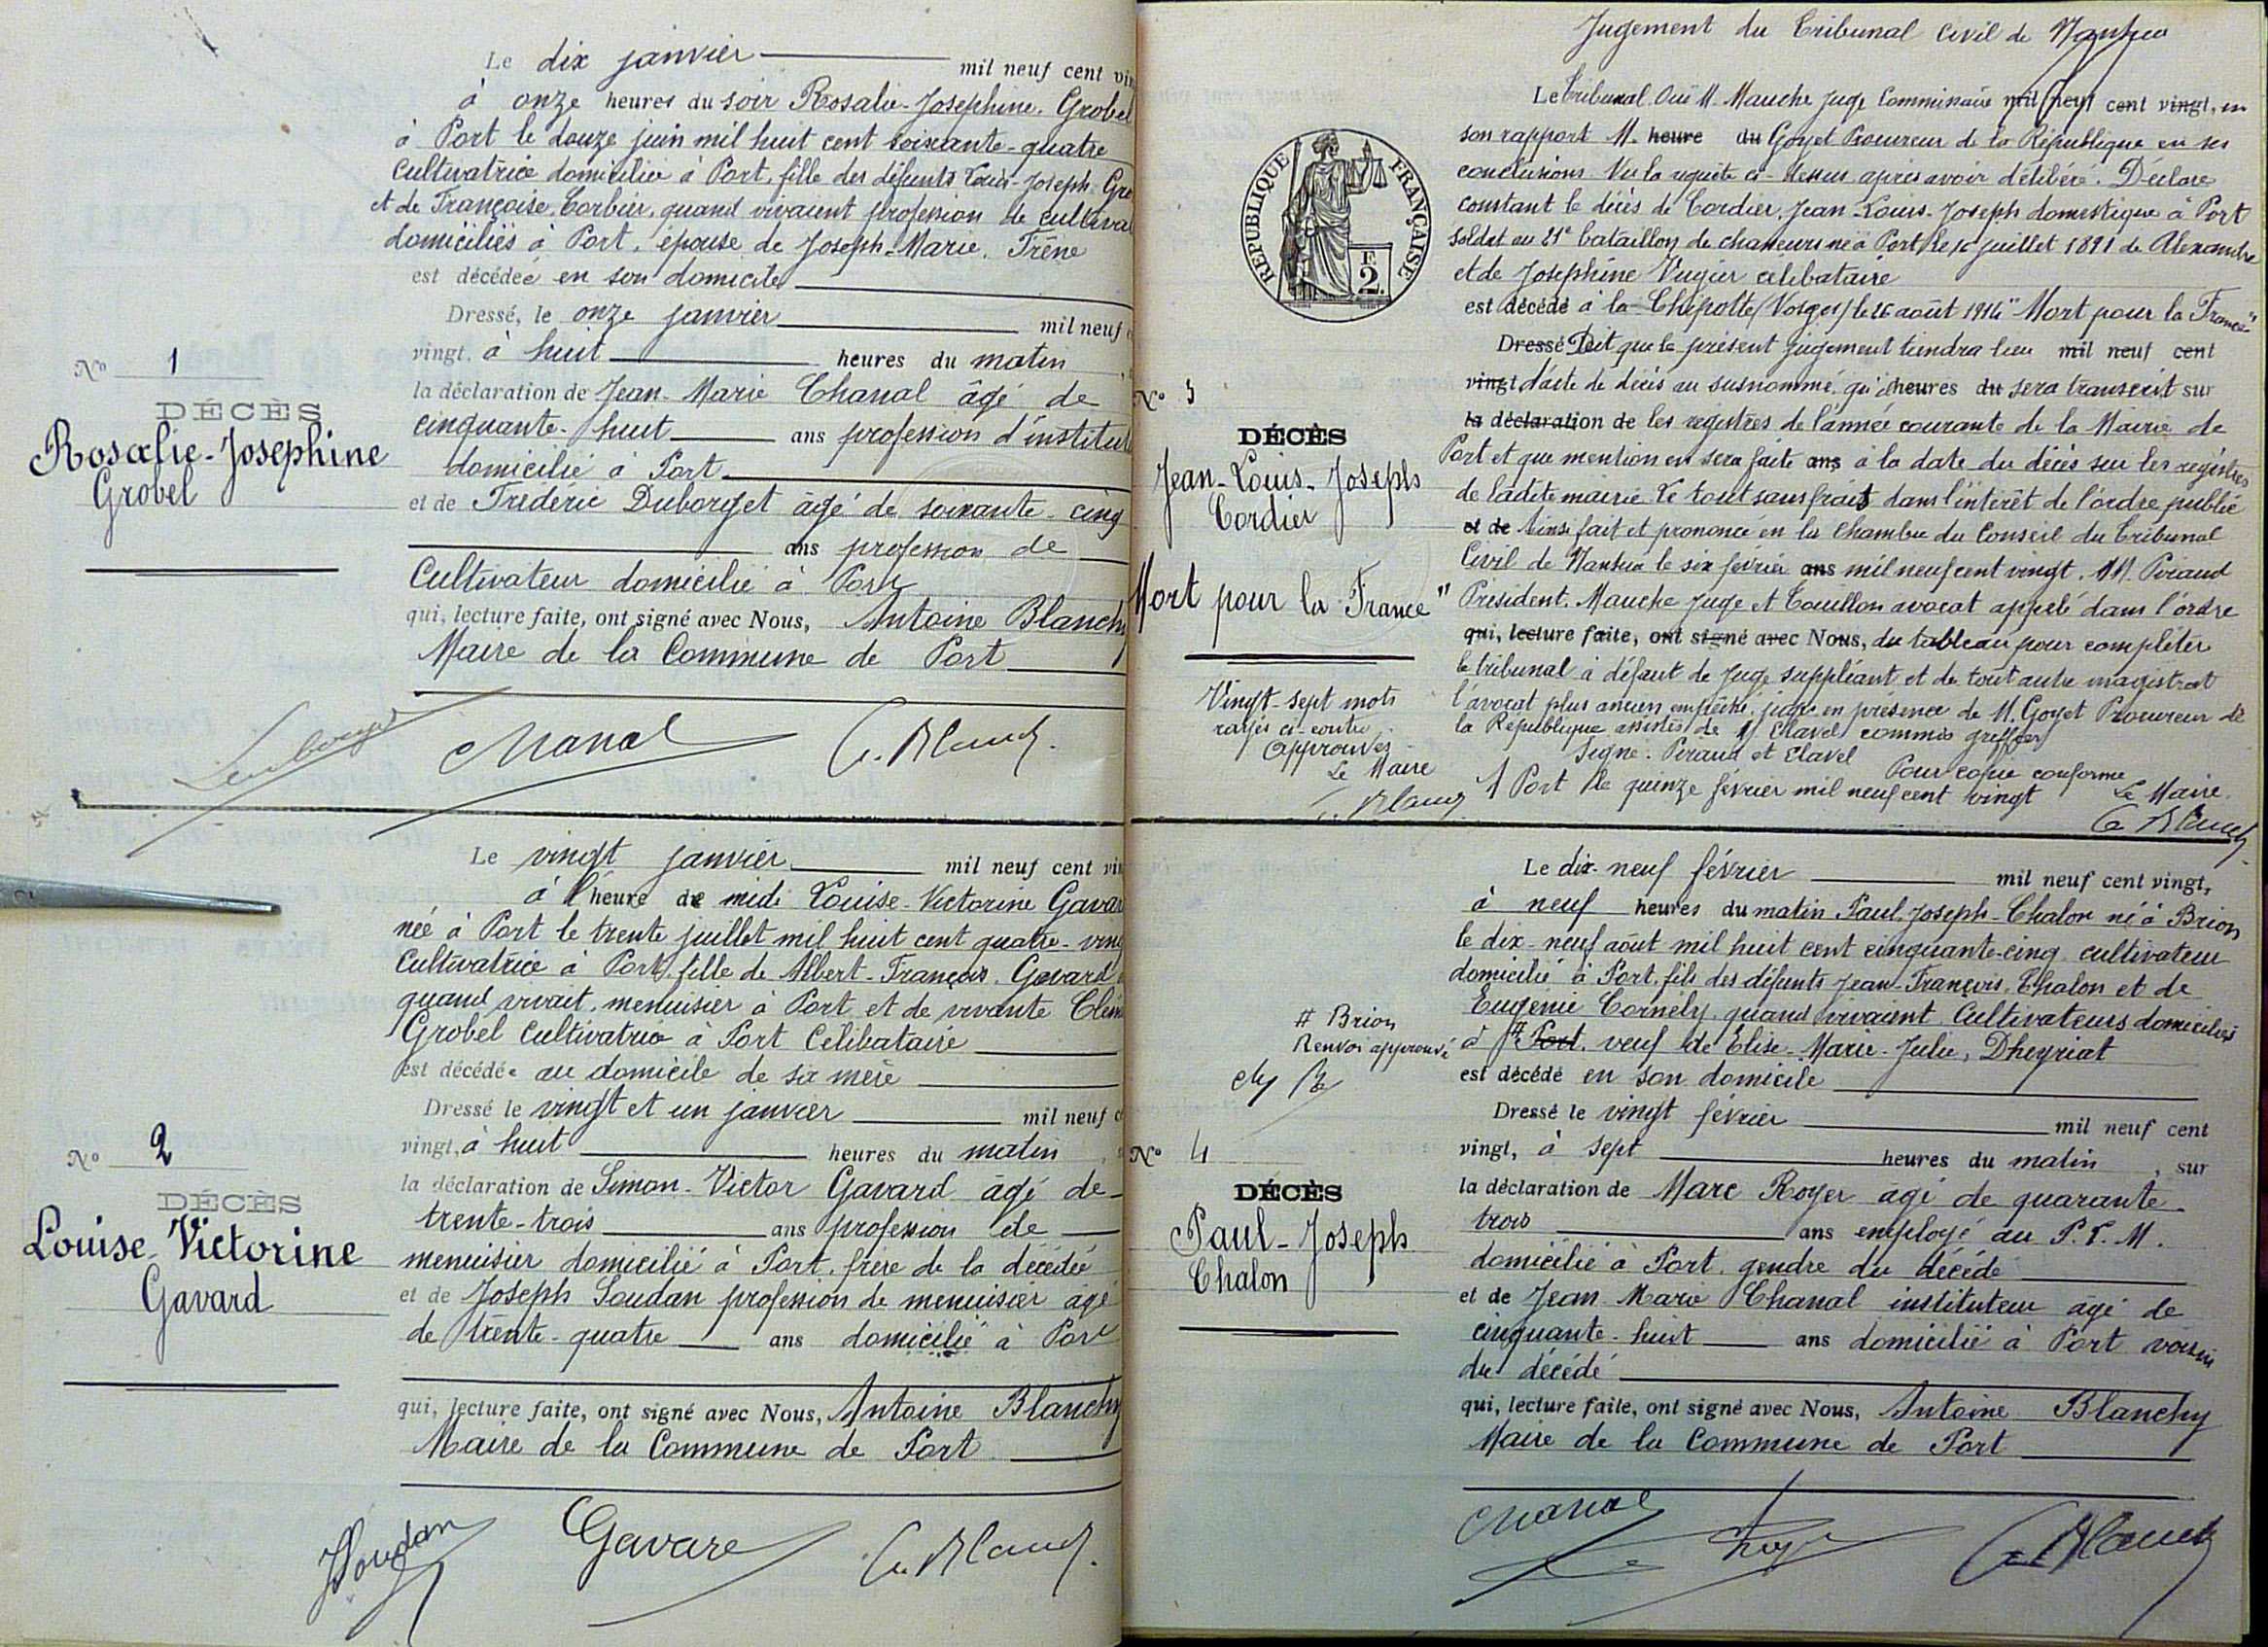 Le dix janvier mil neuf cent
à onze heures du soir Rosalie-Josephine. Grobel
à Port le douze juin mil huit cent soixante-quatre
Cultivatrice domiciliée à Port, fille des défunts Louis-Joseph. Gro
et de Françoise. Corbier, quand vivaient profession de cultiva
domiciliés à Port, épouse de Joseph-Marie. Frêne
est décédée en son domicile
Dressé, le onze janvier mil neuf
vingt, à huit heures du matin
la déclaration de Jean-Marie Chanal âgé de
cinquante-huit ans profession d'institut
domicilié à Port
et de Fréderic Duborget âgé de soixante-cinq
ans profession de
Cultivateur domicilié à Port
qui, lecture faite, ont signé avec Nous, Antoine Blanchy
Maire de la Commune de Port
N° 1
DÉCÈS
Rosalie-Josephine
Grobel
Duborget Chanal A. Blanchy
Le vingt janvier mil neuf cent
à l'heure de midi Louise-Victorine Gavar
née à Port le trente juillet mil huit cent quatre-ving
Cultivatrice à Port, fille de Albert-François. Gavard
quand vivait, menuisier à Port et de vivante Clém
Grobel Cultivatrice à Port Célibataire
est décédée au domicile de sa mère
Dressé le vingt et un janvier mil neuf
vingt, à huit heures du matin
la déclaration de Simon-Victor Gavard âgé de
trente-trois ans profession de
menuisier domicilié à Port. frère de la décédée
et de Joseph Soudan profession de menuisier âgé
de trente-quatre ans domicilié à Port
qui, lecture faite, ont signé avec Nous, Antoine Blanchy
Maire de la Commune de Port
N° 2
DÉCÈS
Louise-Victorine
Gavard
JSoudan Gavard A. Blanchy
Jugement du Tribunal Civil de Nantua
Le Tribunal. Ouï M. Mauche Juge Commissaire mil neuf cent vingt, en
son rapport M. heure du Goyet Procureur de la République en ses
conclusions Vu la requête ci-dessus après avoir délibéré. Déclare
constant le décès de Cordier, Jean-Louis-Joseph domestique à Port
Soldat au 21e bataillon de chasseurs né à Port le 16 juillet 1891 de Alexandre
et de Josephine Vugier célibataire
est décédé à la Chipotte (Vosges) le 26 août 1914 "Mort pour la France"
Dressé Dit que le présent jugement tiendra lieu mil neuf cent
vingt d'acte de décès au susnommé, qu'il heures du sera transcrit sur
la déclaration de les registres de l'année courante de la Mairie de
Port et que mention en sera faite ans à la date du décès sur les registres
de ladite mairie Le tout sans frais dans l'intérêt de l'ordre public
et de Ainsi fait et prononcé en la Chambre du Conseil du Tribunal
Civil de Nantua le six février ans mil neuf cent vingt. MM. Peraud
Président. Mauche Juge et Touillon avocat appelé dans l'ordre
qui, lecture faite, ont signé avec Nous, du tableau pour compléter
le tribunal à défaut de Juge suppléant et de tout autre magistrat
l'avocat plus ancien empêché, juge en présence de M. Goyet Procureur de
la République assistés de M Clavel commis greffier
Signé. Peraud et Clavel Pour copie conforme
A Port le quinze février mil neuf cent vingt Le Maire
A Blanchy
N° 3
DÉCÈS
Jean-Louis-Joseph
Cordier
Mort pour la France"
Vingt-sept mots
rayés ci-contre
Approuvés
Le Maire
A. Blanchy
REPUBLIQUE FRANÇAISE
F.
2.
Le dix-neuf février mil neuf cent vingt,
à neuf heures du matin Paul-Joseph-Chalon né à Brion
le dix-neuf août mil huit cent cinquante-cinq cultivateur
domicilié à Port, fils des défunts Jean-François, Chalon et de
Eugenie Cornély, quand vivaient Cultivateurs domiciliés
à # Port, veuf de Elise-Marie-Julie, Dheyriat
est décédé en son domicile
Dressé le vingt février mil neuf cent
vingt, à sept heures du matin, sur
la déclaration de Marc Royer âgé de quarante
trois ans employé au P.L.M.
domicilié à Port. gendre du décédé
et de Jean-Marie Chanal instituteur âgé de
cinquante-huit ans domicilié à Port voisin
du décédé
qui, lecture faite, ont signé avec Nous, Antoine Blanchy
Maire de la Commune de Port
# Brion
Renvoi approuvé
N° 4
DÉCÈS
Paul-Joseph
Chalon
Chanal Royer A Blanchy